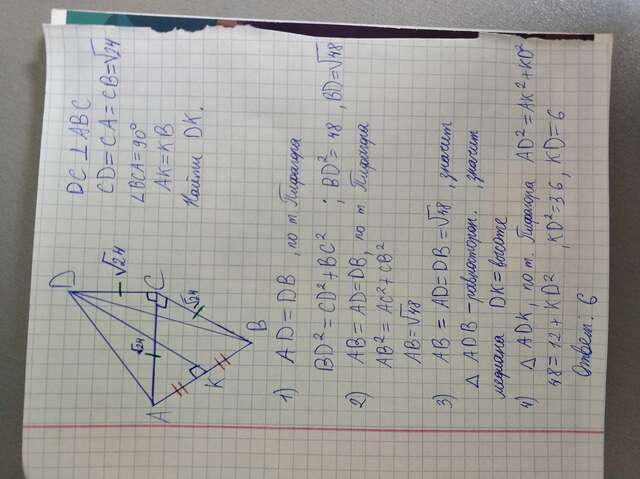 DC ⊥ ABC
CD = CA = CB = √24
∠BCA = 90°
AK = KB
Найти DK.
D
√24
C
√24
√24
A
K
B
1) AD = DB, по т. Пифагора
BD² = CD² + BC²; BD² = 48, BD = √48
2) AB = AD = DB, по т. Пифагора
AB² = AC² + CB²
AB = √48
3) AB = AD = DB = √48, значит
△ ADB - равносторон., значит
медиана DK = высоте
4) △ ADK, по т. Пифагора AD² = AK² + KD²
48 = 12 + KD², KD² = 36, KD = 6
Ответ: 6